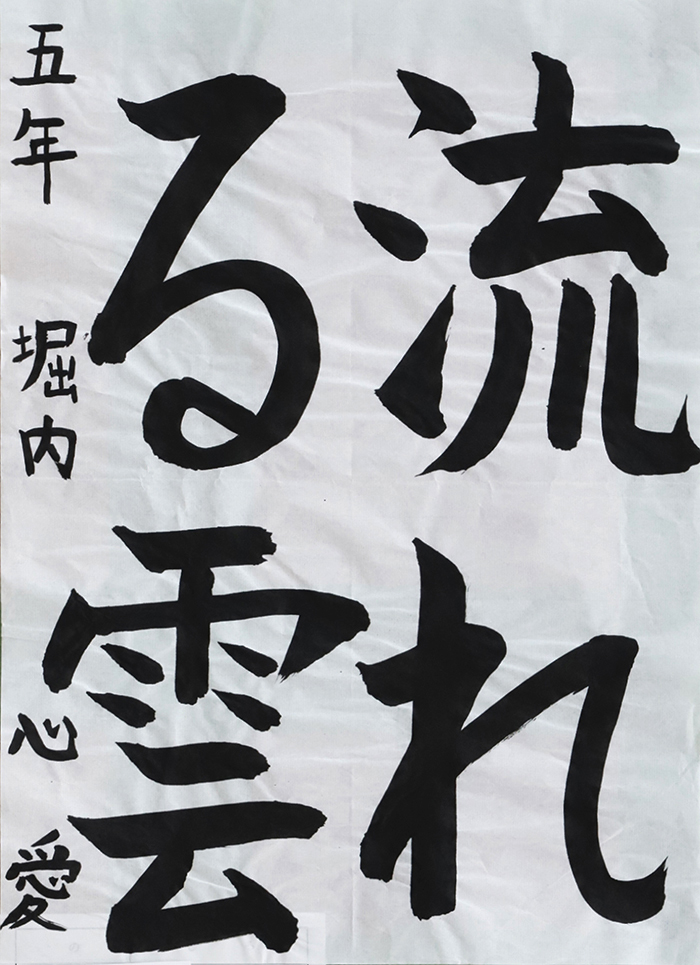 流れ
る雲
五年 堀内 心愛